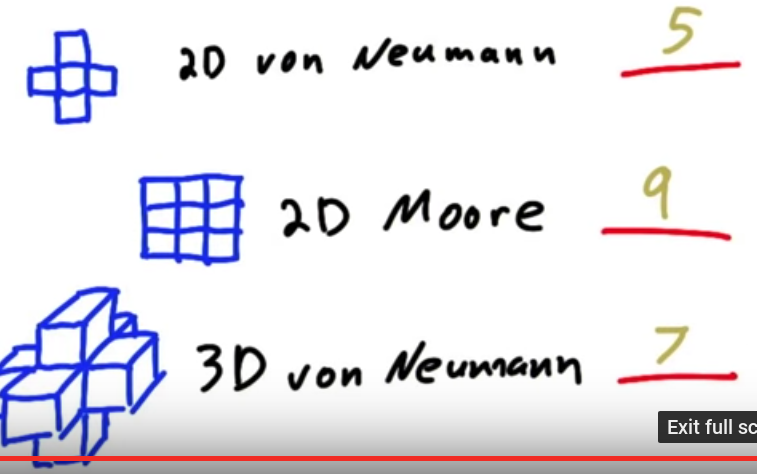 2D von Neumann 5
2D Moore 9
3D von Neumann 7
Exit full sc